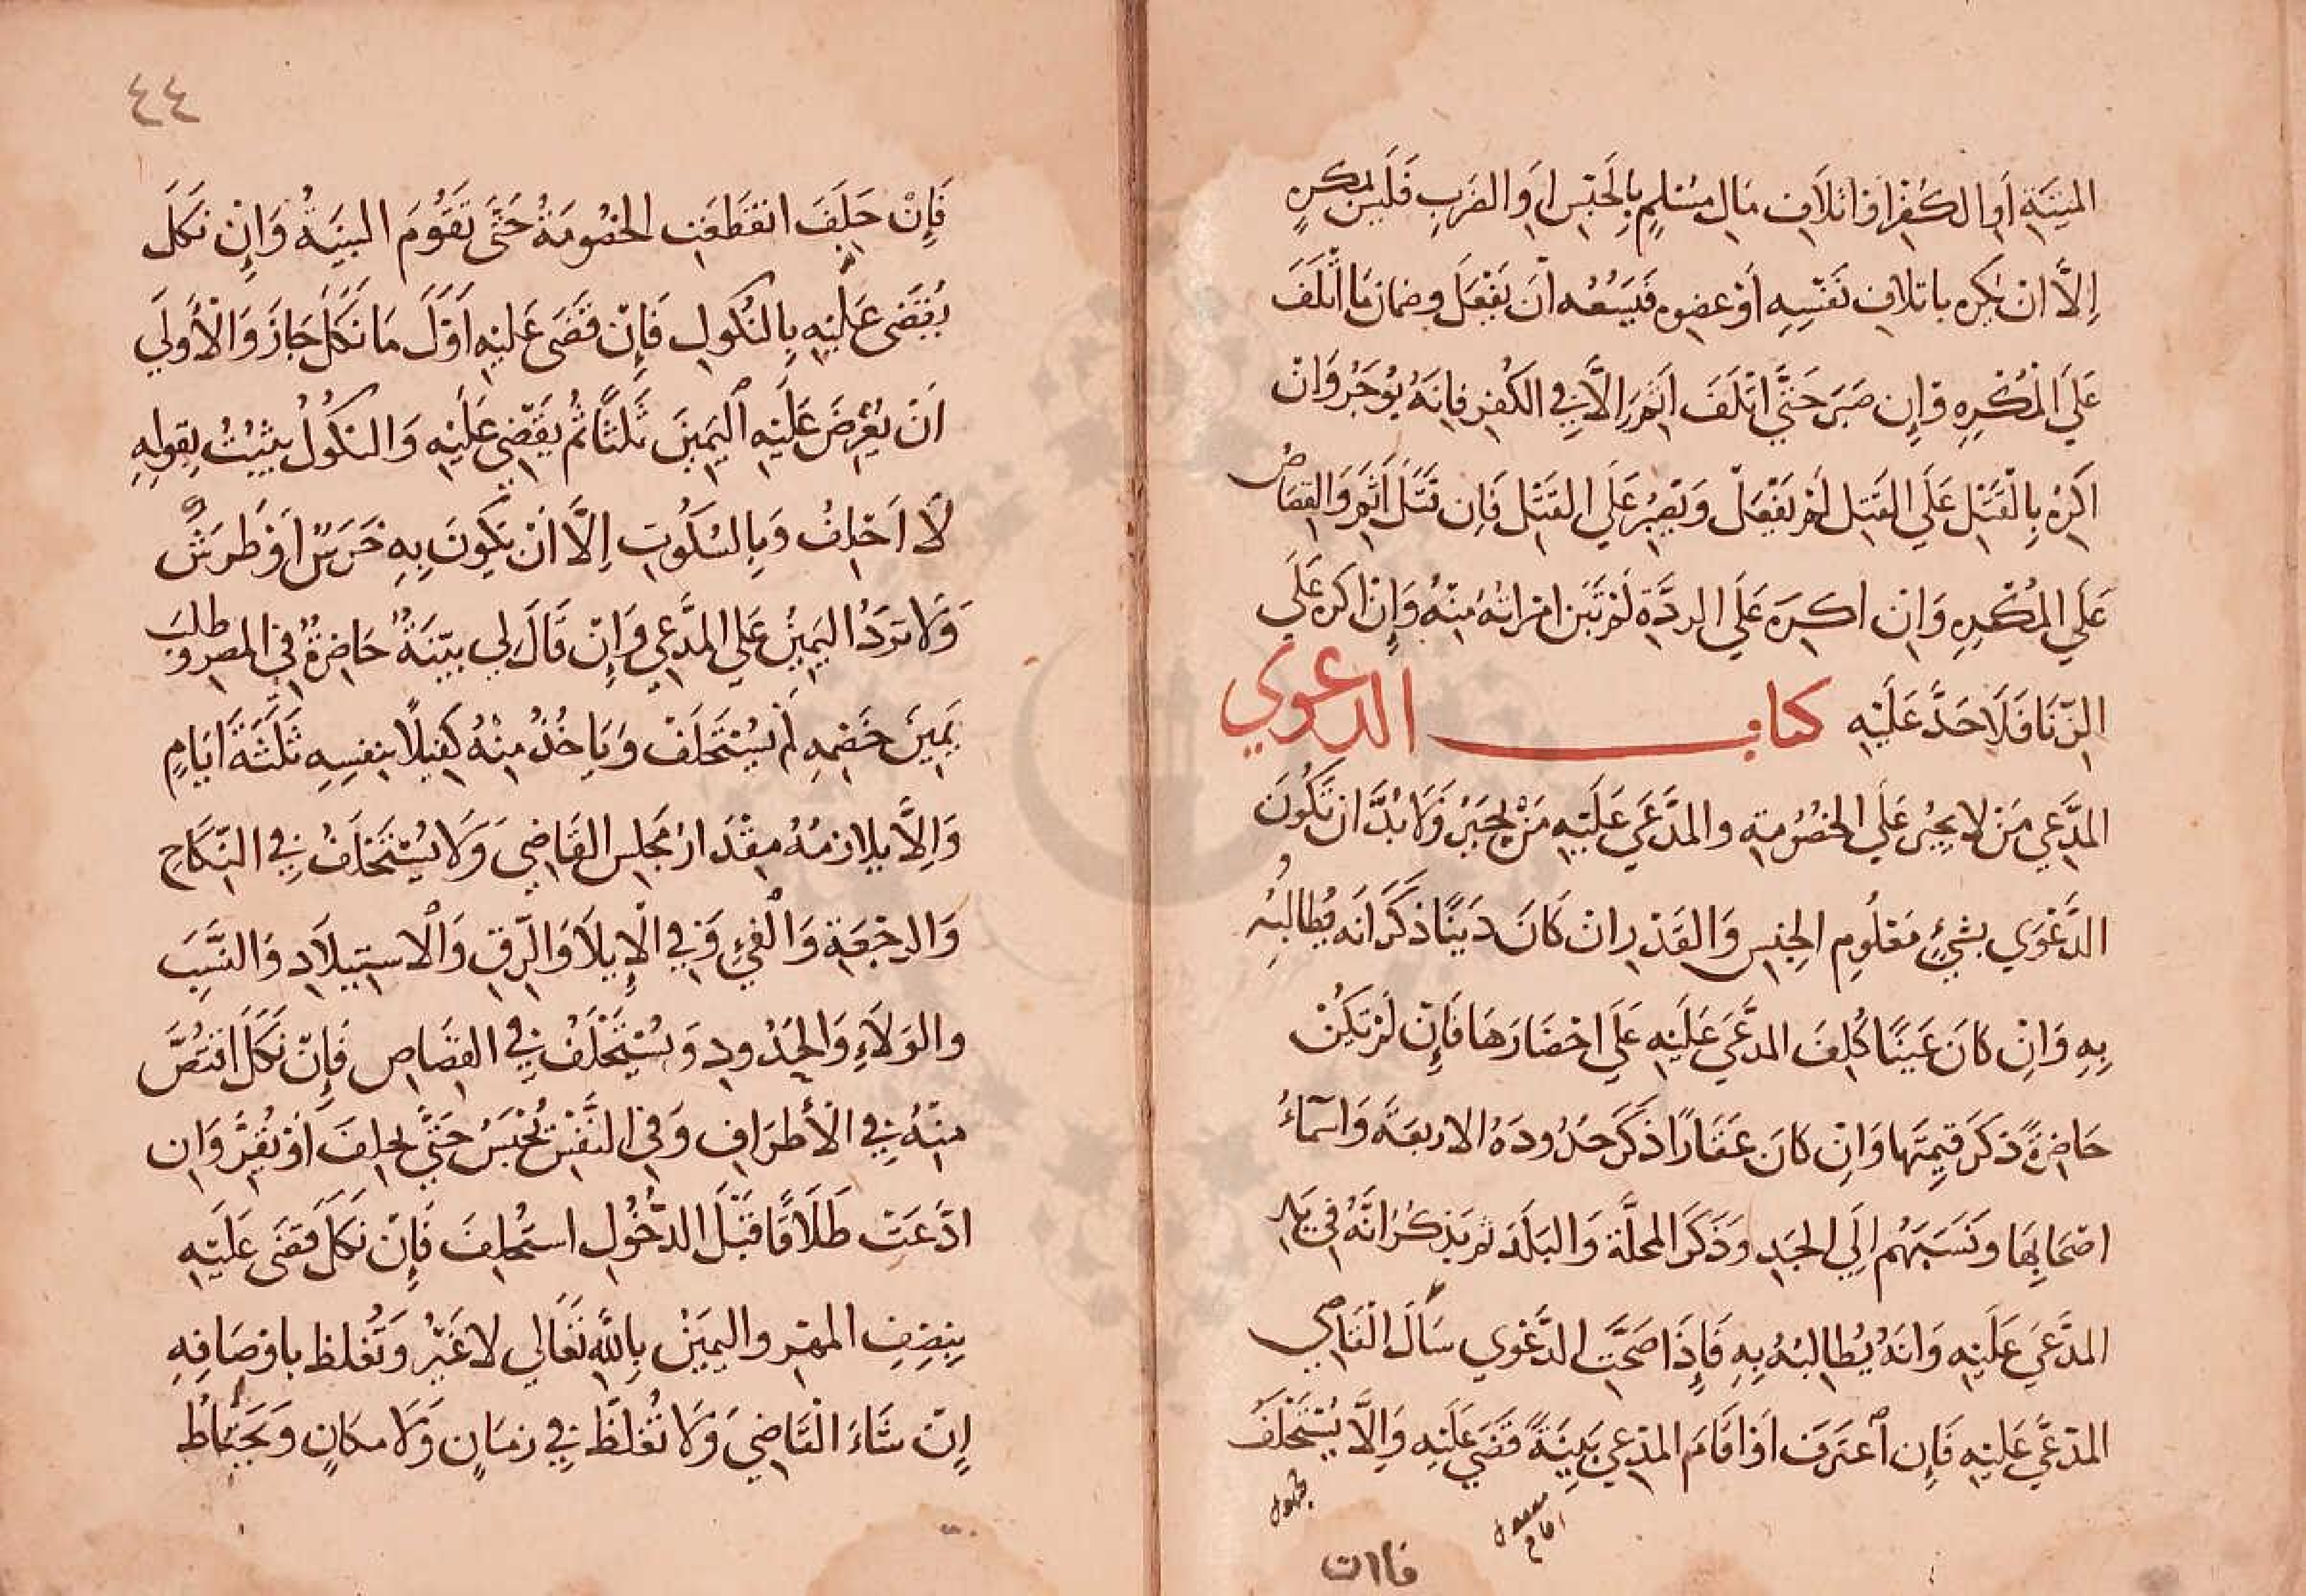 الميتة أو الكفر أو اتلاف مال مسلم بالحبس أو الضرب فليس بمكره
إلَّا ان يكره باتلاف نفسه أو عضوه فيسعه أن يفعل وضمان ما اتلف
على المُكرِهِ وإن صبر حتَّى اتلف اثم إلَّا في الكفر فإنه يؤجر وَان
اكره بالقتل على القتل لم يفعل ويصبر على القتل فإن قتل أثم والقصاص
على المُكرِهِ وَان اكره على الردَّة لم تبن امرأته منه وإن اكره على
الزنا فلا حدَّ عليه كتاب الدعوي
المدَّعي من لا يجبر على الخصومة والمدَّعى عليه من يجبر وَلا بُدَّ ان تكون
الدَّعوي بشيءٍ معلوم الجنس والقدر ان كان دينًا ذكر انه يُطالبُه
بِه وَان كان عينًا كُلِّف المدَّعى عليه على احضارها فإن لم تكن
حاضرةً ذكر قيمتها وَان كان عقارًا ذكر حدُودَهُ الاربعة وَاسمآءُ
اصحابها ونسبهم إلى الجد وذكر المحلَّة والبلد ثم يذكر انَّه في يد
المدَّعى عليه وَانه يُطالبُهُ بِه فإذا صحَّت الدَّعوي سأل القاضي
المدَّعى عليه فإن اعترف أو اقام المدعي بينةً قضى عليه وإلَّا يُستحلف
فان
فإن حلف انقطعت الخصومةُ حتَّى تقوم البينةُ وَإن نكل
يُقضى عليه بالنُّكول فإن قضى عليه اوَّل ما نكل جاز وَالأولي
ان يعرض عليه اليمين ثلثًا ثم يقضي عليه والنكولُ يثبت بقوله
لا احلفُ وَبالسُّكوت إلَّا ان يكون به خرسٌ أو طرشٌ
وَلا تردُّ اليمين على المدَّعي وَإن قال لي بيّنةٌ حاضرةٌ في المصر وطلب
يمين خصمه لم يُستحلف وَيأخذُ منه كفيلًا بنفسه ثلثة ايامٍ
وَإلَّا يلازمُهُ مقدار مجلس القاضي وَلا يُستحلف في النّكاح
والرجعة والفئ في الإيلا والرّق والاستيلاد والنَّسب
والولاءِ والحدود وَيُستحلفُ في القصاص فإن نكل اقتصَّ
منهُ في الأطراف وَفي النَّفس يُحبس حتَّى يحلف أو يقرَّ وَان
ادَّعت طلاقًا قبل الدُّخول استحلف فإن نكل قضى عليه
بنصف المهر واليمين بالله تعالي لا غيرُ وَتُغلظ باوصافه
إن شاء القاضي وَلا تُغلظ في زمان وَلا مكانٍ وَيحتاط
٤٤